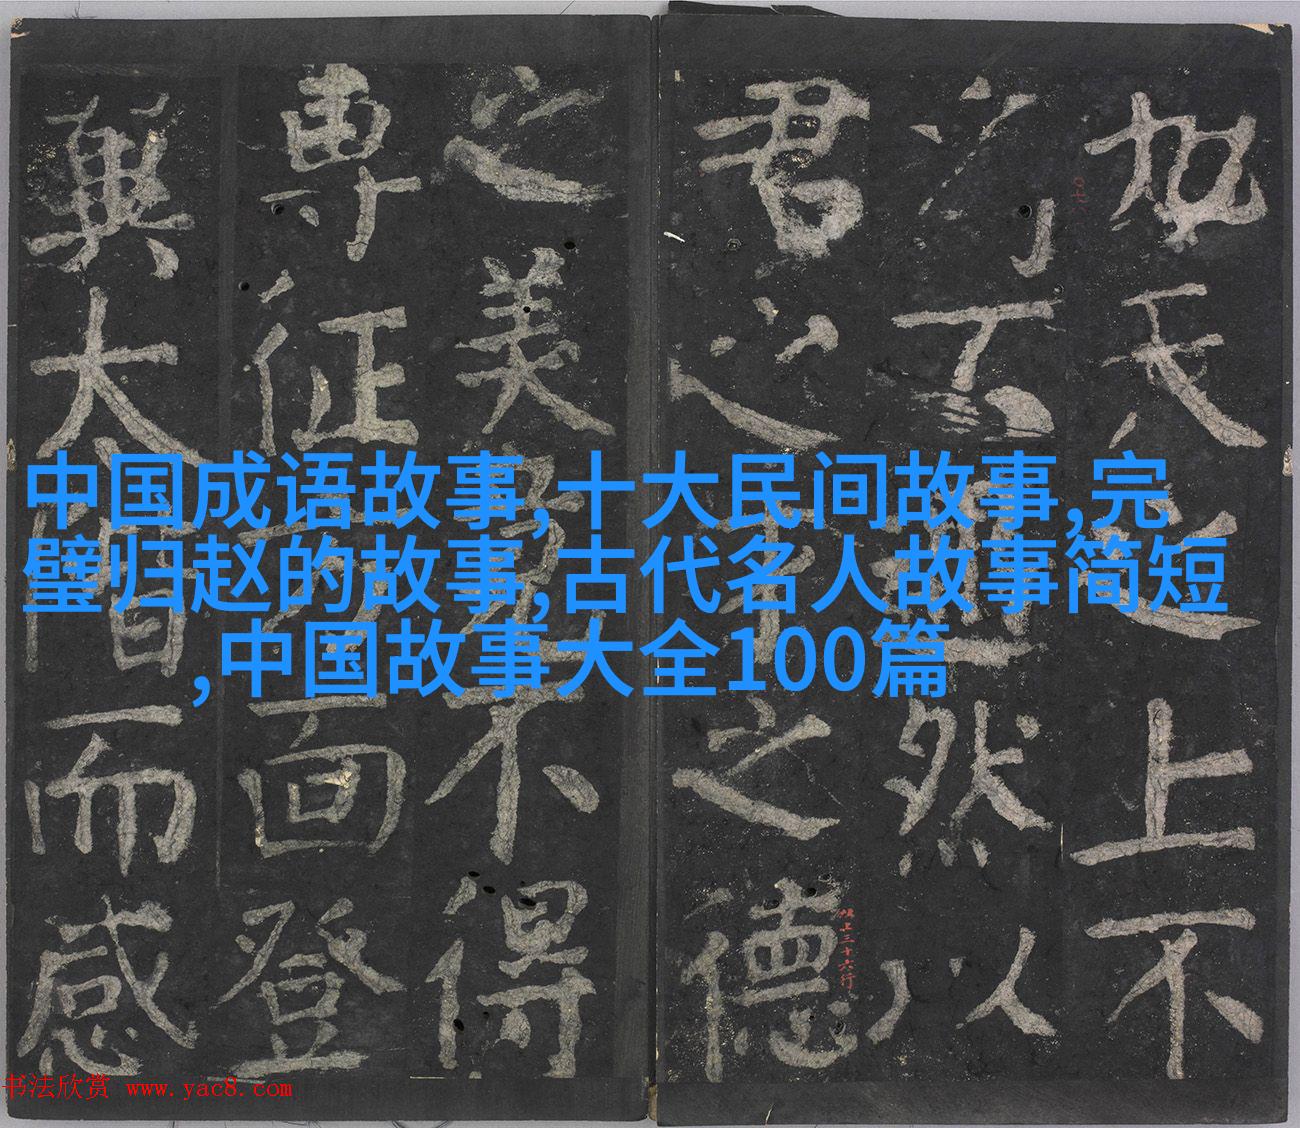 中国成语故事,十大民间故事,完
璧归赵的故事,古代名人故事简短
,中国故事大全100篇
加之上不
然以
君之之德
之美不得
專征面登
太階而感
上三十六行
书法欣赏 www.yac8.com